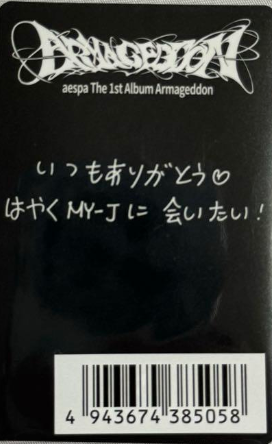 ARMAGEDDON
aespa The 1st Album Armageddon
いつもありがとう♡
はやく MY-Jに 会いたい!
4 943674 385058